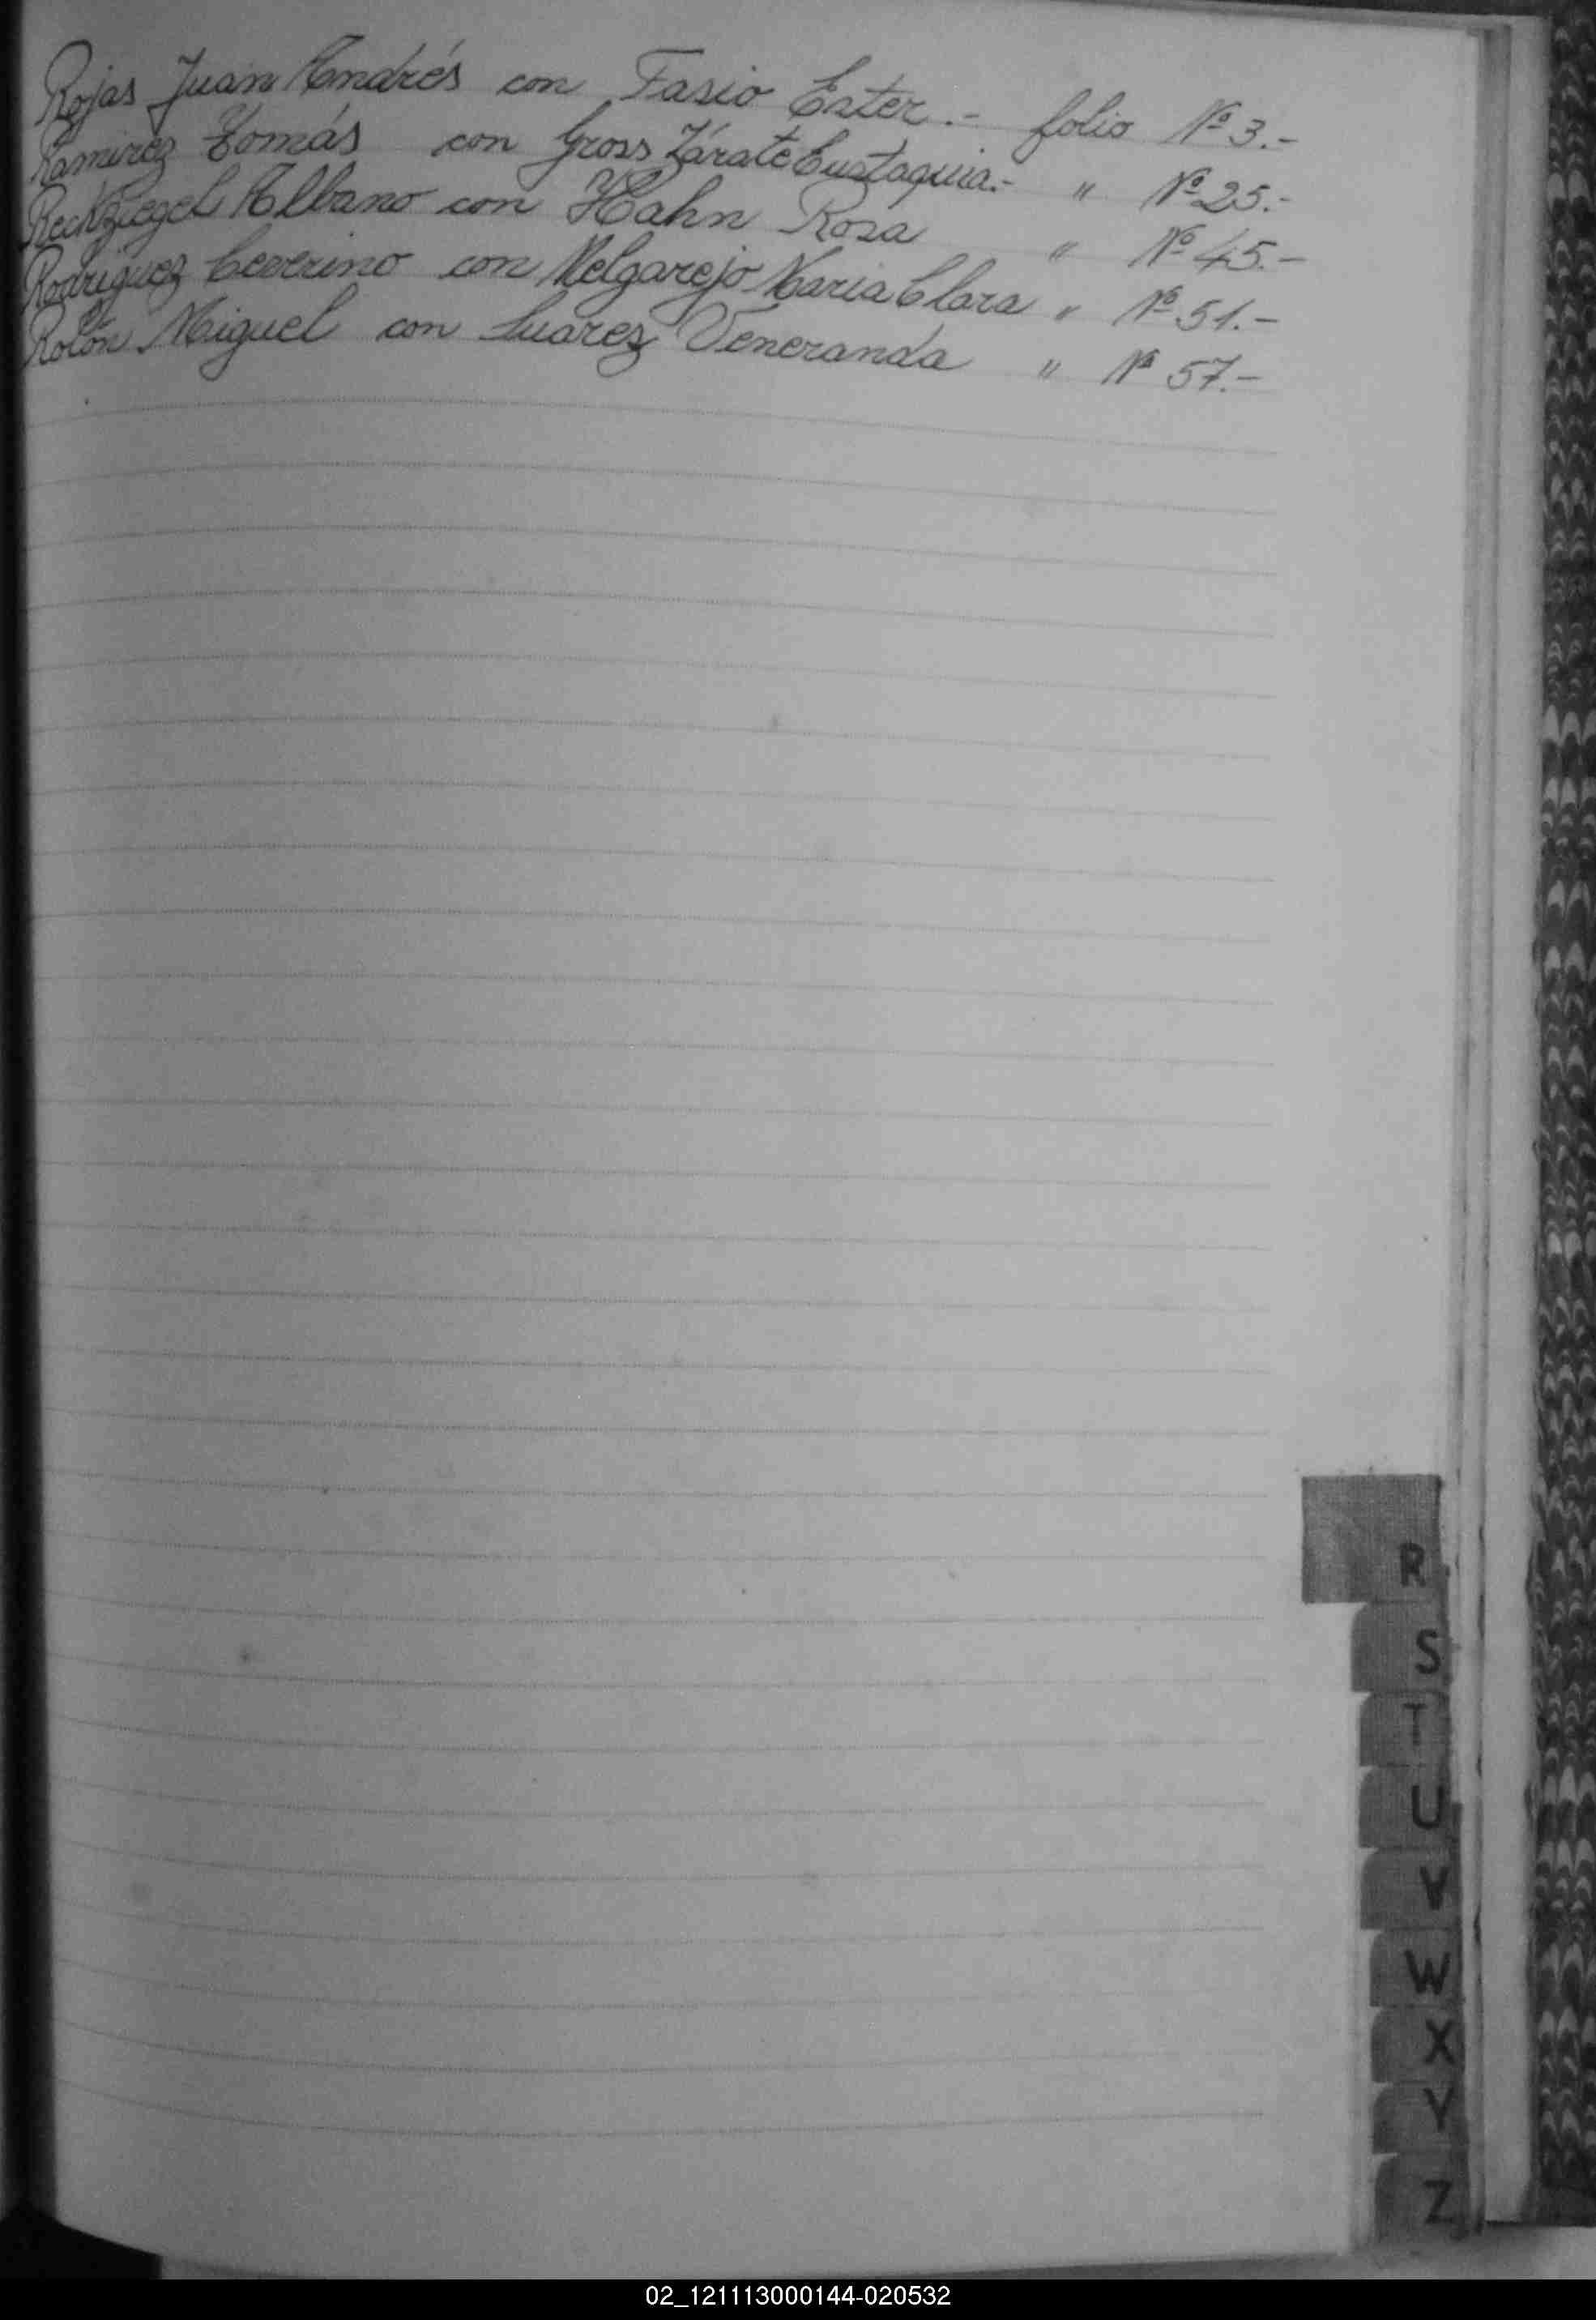 Rojas Juan Andrés con Fasio Ester.- folio Nº 3.-
Ramirez Tomás con Gross Zárate Eustaquia.- " Nº 25.-
Reckziegel Albano con Hahn Rosa " Nº 45.-
Rodriguez Ceverino con Melgarejo Maria Clara " Nº 51.-
Rolón Miguel con Suarez Veneranda " Nº 57.-
R
S
T
U
V
W
X
Y
Z
02_121113000144-020532